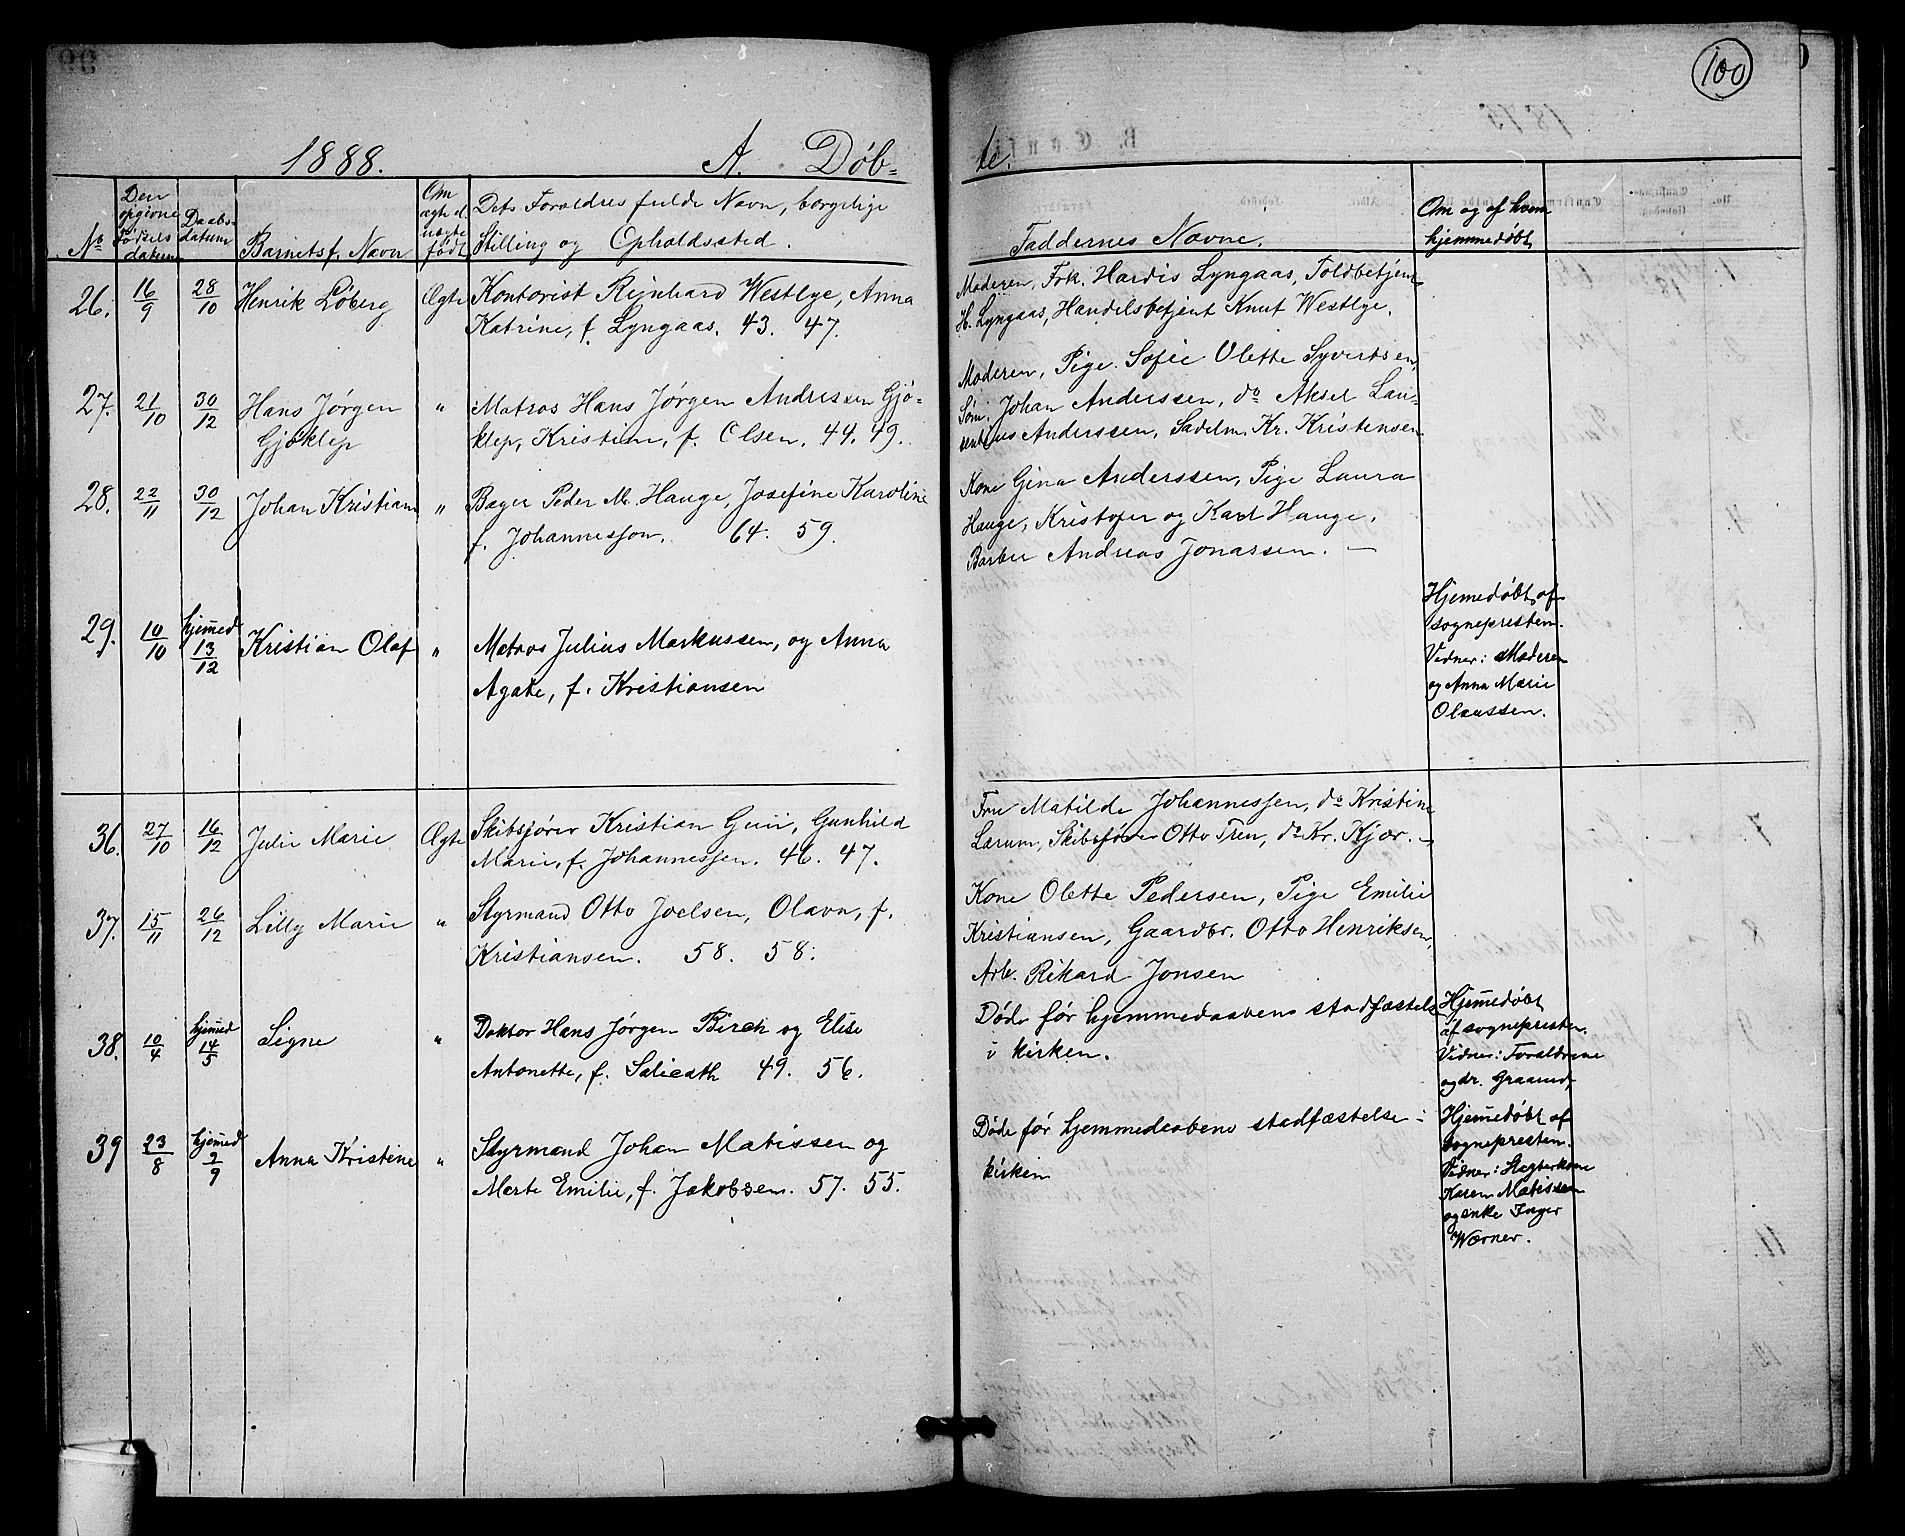 100
1888. A. Døb-
te.
No
Den opgivne Fødselsdatum
Daabsdatum
Barnets f. Navn
Om ægte el. uægte født
Dets Foraldres fulde Navn, borgelige
Stilling og Opholdssted.
Faddernes Navne.
Om og af hvem
hjemmedøbt
26. 16/9 28/10 Henrik Løberg Ægte Kontorist Reinhard Westlye, Anna
Katrine, f. Lyngaas. 43. 47.
Moderen, Frk. Hardis Lyngaas, Toldbetjent
H. Lyngaas, Handelsbetjent Knut Westlye.
27. 21/10 30/12 Hans Jørgen " Matros Hans Jørgen Andressen Gjø-
Gjøklep klep, Kristian, f. Olsen. 44. 49.
Moderen, Pige Sofie Olette Syvertsen,
Søm. Johan Anderssen, do Aksel Lau-
sentius Anderssen, Sadelm. Kr. Kristensen
28. 22/11 30/12 Johan Kristian " Bager Peder M. Hauge, Josefine Karoline
f. Johannesson. 64. 59.
Kone Gina Anderssen, Pige Laura
Hauge, Kristofer og Karl Hauge.
Barber Andreas Jonassen. —
29. 10/10 hjemmed 13/12 Kristian Olaf " Matros Julius Markussen, og Anna
Agate, f. Kristiansen
Hjemedøbt af
sognepresten.
Vidner: Moderen
og Anna Marie
Olaussen.
36. 27/10 16/12 Julie Marie Ægte Skibsfører Kristian , Gunhild
Marie, f. Johannessen. 46. 47.
Fru Matilde Johannessen, do Kristine
Larum, Skibsfører Otto Tren, do Kr. Kjær. —
37. 15/11 26/12 Lilly Marie " Styrmand Otto Joelsen, Olava, f.
Kristiansen. 58. 58.
Kone Olette Pedersen, Pige Emilie
Kristiansen, Gaardbr. Otto Henriksen,
Arb. Rikard Jonsen
38. 10/4 hjemmed 14/5 Signe " Doktor Hans Jørgen Birch og Elise
Antonette, f. Salicath 49. 56.
Døde før hjemmedaabens stadfæstelse
i kirken.
Hjemmedøbt
af sognepresten.
Vidner: Foraldrene
og dr. Graarud,
39 23/8 hjemmed 2/9 Anna Kristine " Styrmand Johan Matissen og
Marte Emilie, f. Jakobsen. 57. 55.
Døde før hjemmedaabens stadfæstelse i
kirken
Hjemmedøbt af
sognepresten.
Vidner: Slagterkone
Karen Matissen
og enke Inger
Wærner.